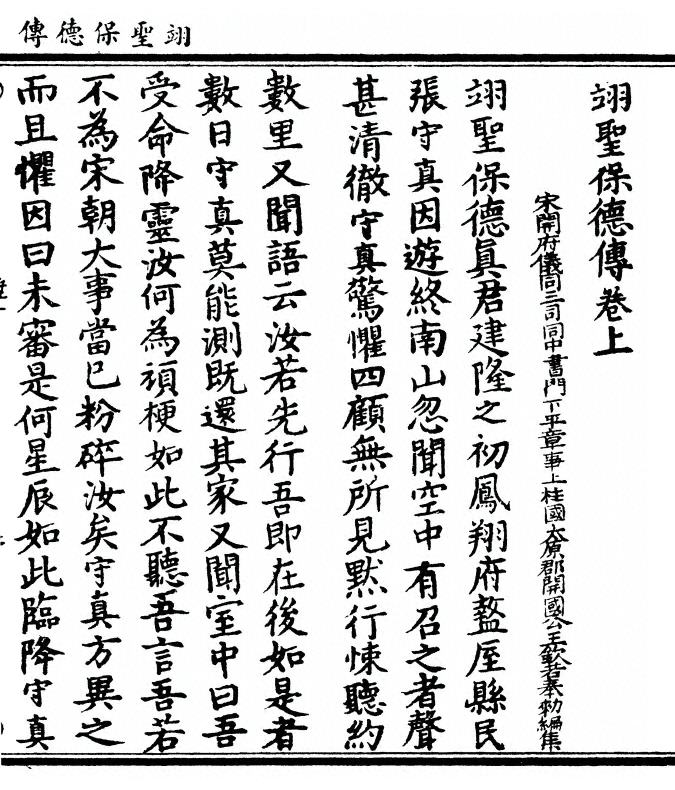 翊聖保德傳
翊聖保德傳卷上
宋開府儀同三司同中書門下平章事上柱國太原郡開國公王欽若奉勅編集
翊聖保德眞君建隆之初鳳翔府盩厔縣民
張守真因遊終南山忽聞空中有召之者聲
甚清徹守真驚懼四顧無所見默行悚聽約
數里又聞語云汝若先行吾即在後如是者
數日守真莫能測既還其家又聞室中曰吾
受命降靈汝何為頑梗如此不聽吾言吾若
不為宋朝大事當已粉碎汝矣守真方異之
而且懼因曰未審是何星辰如此臨降守真